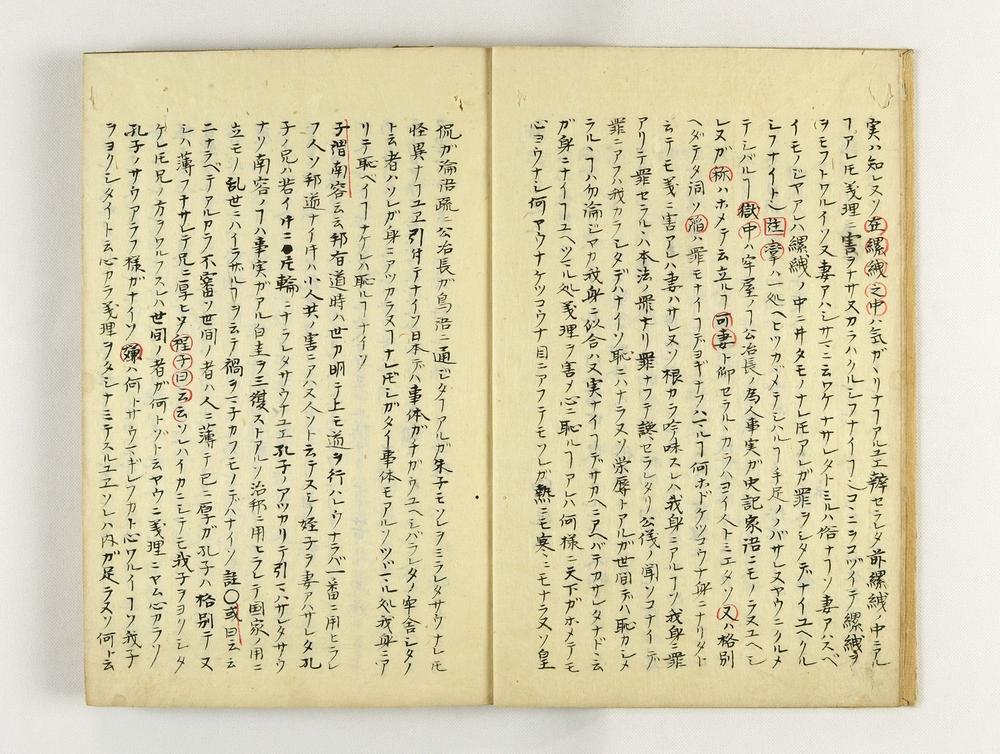 実ハ知レヌソ在縲絏之中ハ式ガヽリナヿアルユエ辨セラレタ前縲絏ノ中ニアル
ヿアレ𪜈義理ニ害ヲナサヌカラハクルシフナイヿ
ヲモフトワルイソ又妻アハシサマニ云ワケナサレタトミルハ俗ナヿソ妻アハスベ
イモノジヤアレハ縲絏ノ中ニ井タモノナレ𪜈アレガ罪ヲシタデナイユヘクル
シフナイト註掌ハ一処ヘヒツカメテシハル手足ノノバサレヌヤウニクルメ
テシバルヿ獄中ハ牢屋ノヿ公治長ノ為人事実ガ史記家語ニモノラヌユヘシ
レヌガ称ハホメテ云立ルヿ可妻ト仰セラルヽカラハヨイ人トミエタソ又ハ格別
ヘダテタ詞ソ陥ハ罪モナイヿデヨギナフハマルヿ何ホドケツコウナ身ニナリタト
云テモ義ニ害アレハ妻ハサレヌソ根カラ吟味スレハ我身ニアルヿソ我身ニ罪
アリテ罪セラルハ本法ノ罪ナリ罪ナフテ誤セラレタリ公儀ノ聞ソコナイデ
罪ニアフハ我カラシタデハナイソ恥ニハナラヌソ栄辱トアルガ世間デハ恥カシメ
ラルヽヿハ勿論ジヤカ我身ニ似合ハヌ実ナイヿデサカヘニアヘバテカサレタナドヽ云
ガ身ニナイヿユヘツマル処義理ヲ害メ心ニ恥ルヿアレハ何様ニ天下ガホメテモ
心ヨウナシ何ヤウナケツコウナ目ニアフテモソレガ熱ニモ寒ニモナラヌソ皇
侃ガ論語疏ニ公治長ガ鳥語ニ通ジタヿアルガ朱子モソレヲミラレタサウナレ𪜈
怪異ナヿユヱ引タテナイソ日本デハ事体ガナガウユヘシバラレタノ牢舎シタノ
ト云者ハソレガ身ニアツカラヌヿナレ𪜈シガタイ事体モアルソツマル処我身ニア
リテ恥ベイヿナケレハ恥ルヿナイソ
子謂南容云云邦有道時ハ世カ明テ上モ道ヲ行ハレウナラバ一番ニ用ヒラレ
フ人ソ邦道ナイ𪜈ハ小人共ノ害ニアハヌ人ソト云テスシノ姪子ヲ妻アハサレタ孔
子ノ兄ハ若イ𪜈ニ
ナソ南容ノヿハ事実ガアル白圭ヲ三復ストアルソ治邦ニ用ヒラレテ国家ノ用ニ
立モノ乱世ニハイラザルヿヲ云テ禍ヲマ子カフモノデハナイソ註〇或曰云云
ニナラベテアルカラノ不審ソ世間ノ者ハ人ニ薄テ已ニ厚ガ孔子ハ格別テ又
シハ薄フナサレテ兄ニ厚ヒソ程子曰云云ソレハイカニシテモ我子ヲヨクシタ
ケレ𪜈兄ノ方ラワルフスレハ世間ノ者ガ何トゾト云ヤウニ義理ニヤム心カラソ
孔子ノサウアラフ様ガナイソ嫌ハ何トサウニギレフカト心ワルイヿソ我子
ヲヨクシタイト云心カラ義理ヲタシナミテスルユヱソレハ内ガ足ラヌソ何ト云